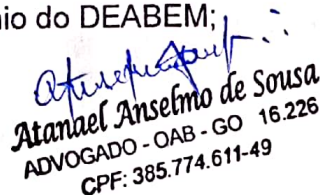 io do DEABEM;
Atanael Anselmo de Sousa
ADVOGADO - OAB - GO 16.226
CPF: 385.774.611-49